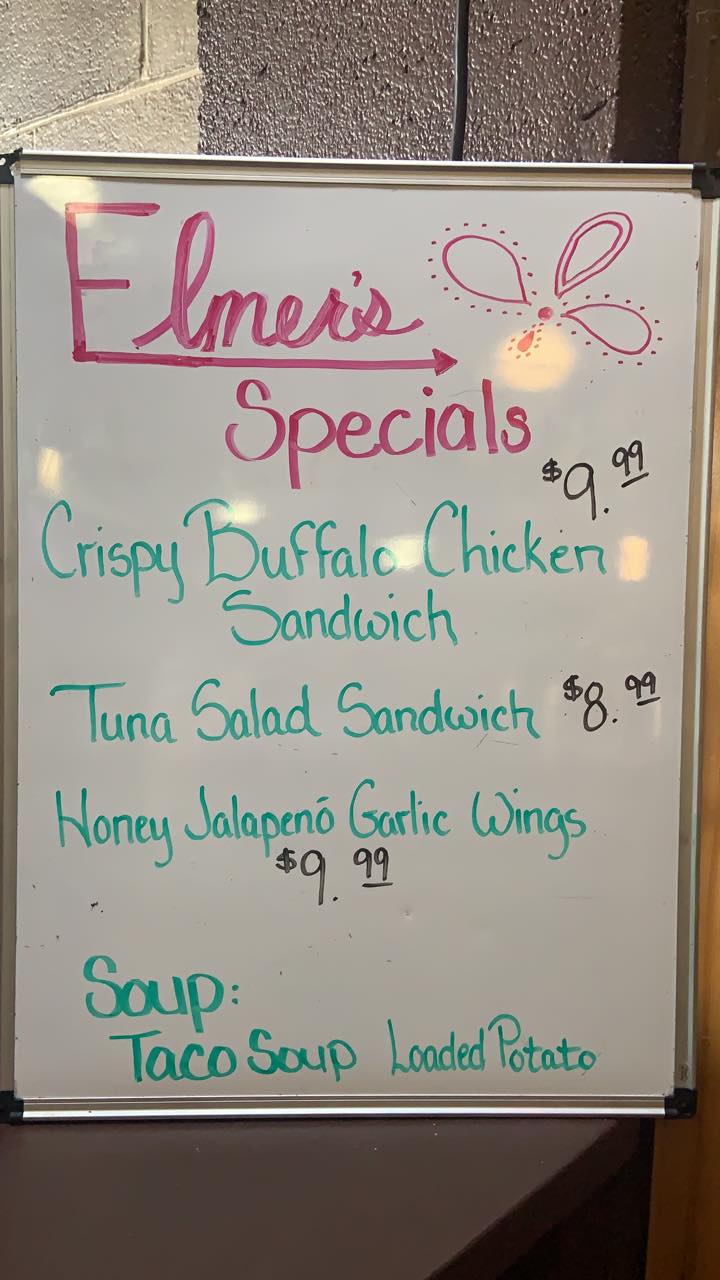 Elmer's
Specials
$9.99
Crispy Buffalo Chicken
Sandwich
Tuna Salad Sandwich $8.99
Honey Jalapenó Garlic Wings
$9.99
Soup:
Taco Soup Loaded Potato